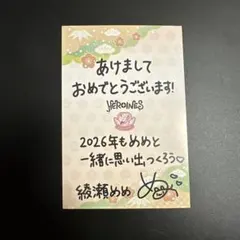 あけまして
おめでとうございます!
HEROINES
2026年もめめと
一緒に思い出つくろう♡
綾瀬めめ